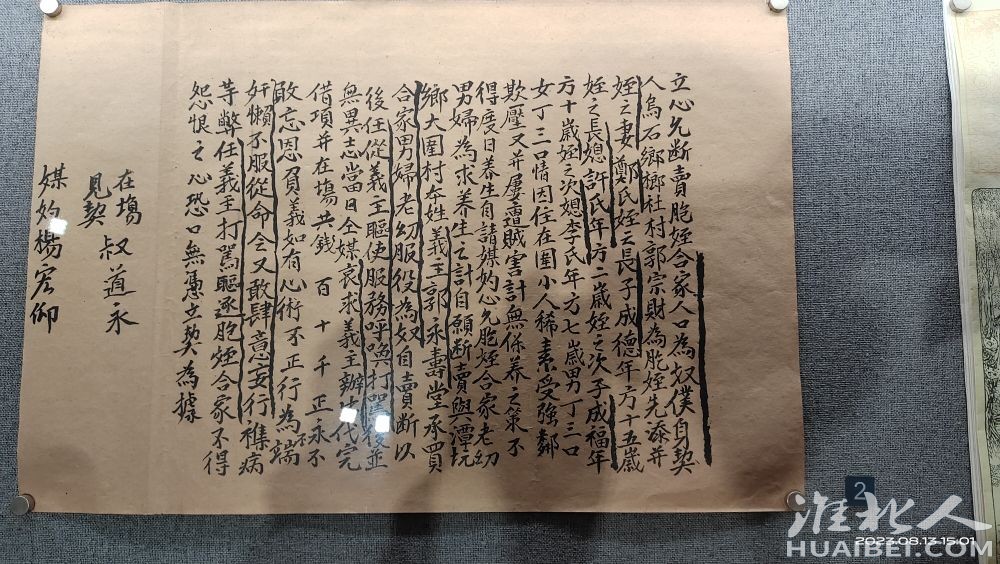 立心允断賣胞姪合家人口為奴僕身契
人烏石鄉鄉社村郭宗財為胞姪先添并
姪之妻鄭氏姪之長子成德年方十五歲
姪之長媳許氏年方二歲姪之次子成福年
方十歲姪之次媳李氏年方七歲男丁三口
女丁三口情因住在圍小人稀素受強鄰
欺壓又并屢遭賊害計無係养之策不
得度日养生自請媒妁心允胞姪合家老幼
男婦為求养生之計自願断賣與潭坑
鄉大圍村本姓義主郭永壽堂承買
合家男婦老幼服役為奴自賣断以
後任從義主驅使服務呼喚打罵後並
無異志當日仝媒哀求義主辦法代完
借項并在塲共錢 百 十 千 正永不
敢忘恩負義如有心術不正行為不端
奸懶不服從命令又敢肆意妄行穢病
等弊任義主打罵驅逐胞姪合家不得
怨恨之心恐口無憑立契為據
在塲
見契 叔道永
媒妁楊宏仰
2
淮北人
2023.08.13 15:01
HUAIBEI.COM